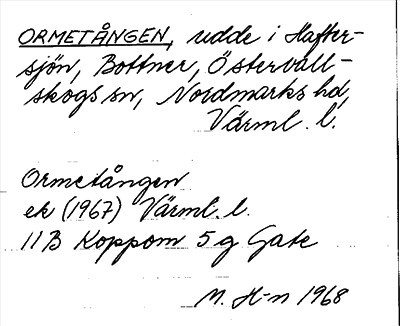 ORMETÅNGEN, udde i Hafter-
sjön, Bottner, Östervall-
skogs sn, Nordmarks hd,
Värml. l.
Ormetången
ek (1967) Värml. l.
11B Koppom 5g Gate
M. H-n 1968